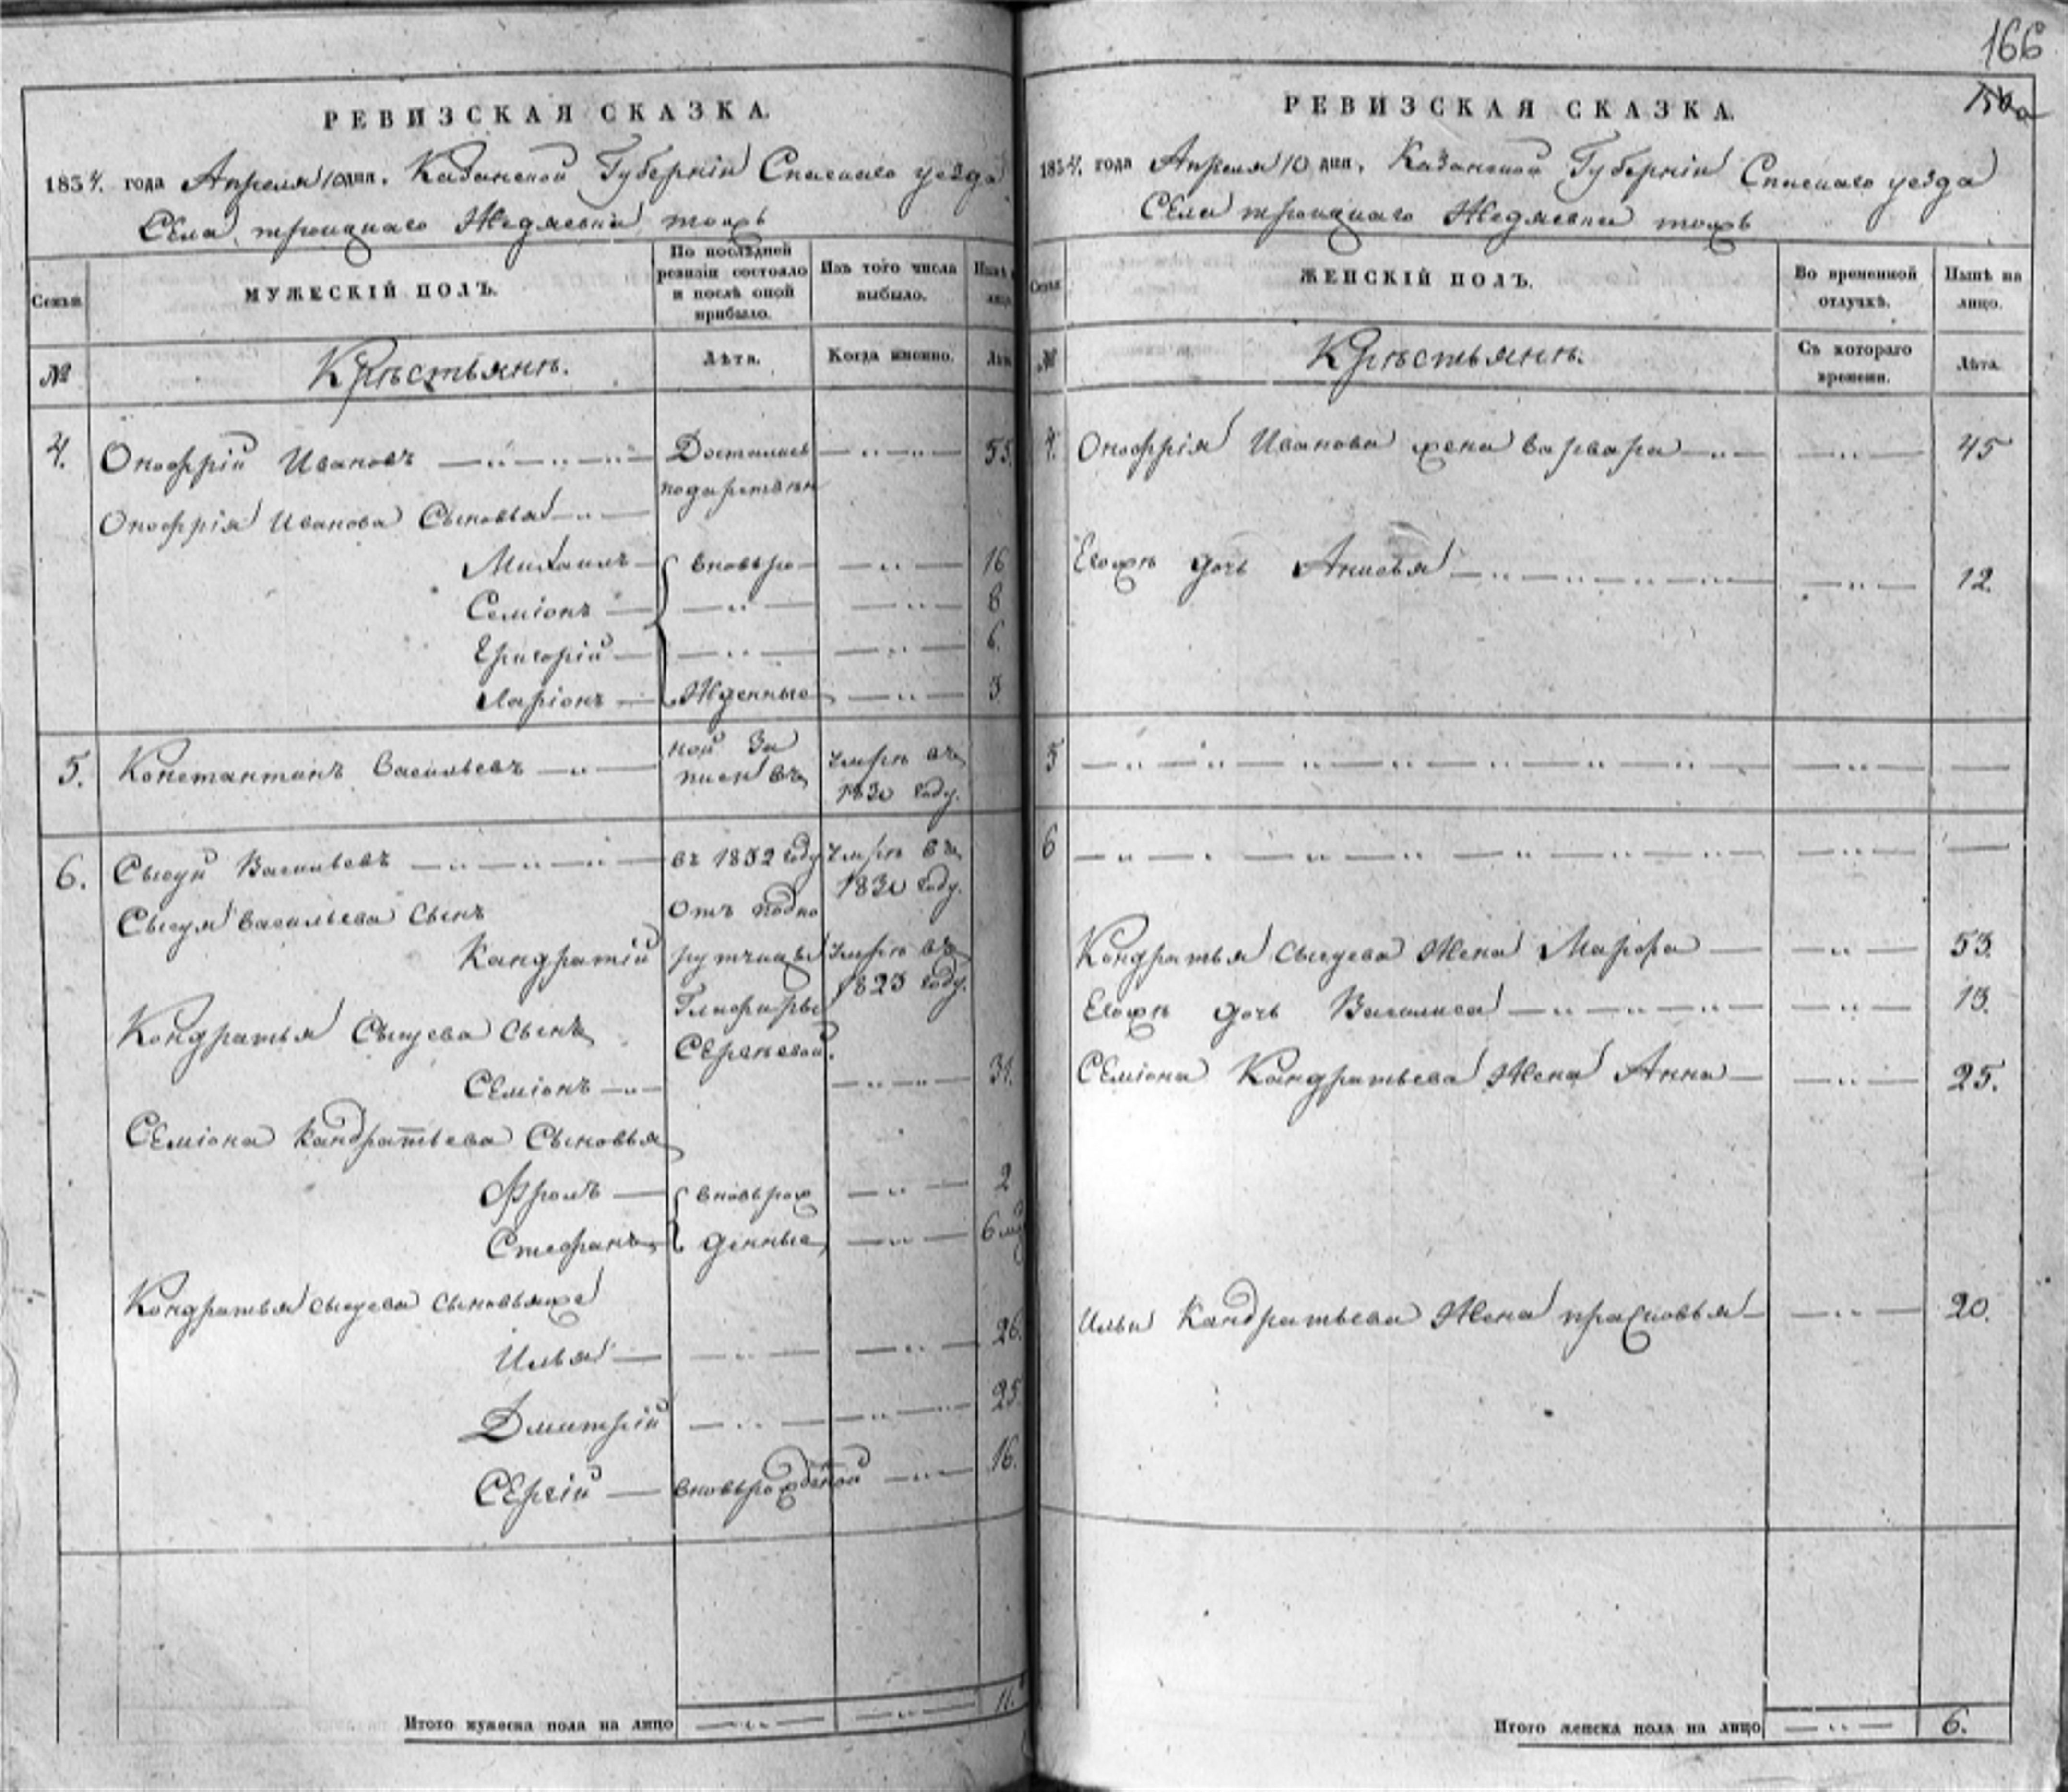 166
РЕВИЗСКАЯ СКАЗКА.
1834. года Апреля 10 дня. Казанской Губернiи Спаскаго уезда
Села троицкаго Жедяевка тожъ
Семьи.
МУЖЕСКIЙ ПОЛЪ.
По послѣдней ревизiи состояло и послѣ оной прибыло.
Изъ того числа выбыло.
Нынѣ
лицо
№
Крѣстьянѣ.
Лѣта.
Когда именно.
Лѣта
4. Онофрiй Ивановъ Досталися 55.
подаретвѣн
Онофрiя Иванова Сыновья
Михаилъ вновьро 16
Семiонъ 8
Григорiй 6.
Ларiонъ Жденные 3
5. Константинъ Васильевъ ной За писи въ умрѣ въ 1830 году.
6. Сысуй Васильевъ въ 1832 году умрѣ въ 1830 году.
Сысуя Васильева Сынъ Отъ подпо
Кандратiй рутчицы умрѣ въ 1823 году.
Глафиры
Кондратья Сысуева Сынъ
Сергѣевой.
Семiонъ 31.
Семiона Кандратьева Сыновья
Фролъ вновьрож 2
Стефанъ денные 6 мѣ
Кондратья Сысуева сыновьяже
Илья 26.
Дмитрiй 25
Сергiй вновьрожденой 16.
Итого мужеска пола на лицо 11.
РЕВИЗСКАЯ СКАЗКА.
1834. года Апреля 10 дня. Казанской Губернiи Спаскаго уезда
Села троицкаго Жедяевка тожъ
Семьи
ЖЕНСКIЙ ПОЛЪ.
Во временной отлучкѣ.
Нынѣ на лицо.
№
Крѣстьянѣ.
Съ котораго времени.
Лѣта.
4. Онофрiя Иванова жена варвара 45
Евожѣ дочь Анисья 12.
5
6
Кондратья Сысуева Жена Марфа 53.
Евожѣ дочь Василиса 13.
Семiона Кандратьева Жена Анна 25.
Ильи Кандратьева Жена прасковья 20.
Итого женска пола на лицо 6.